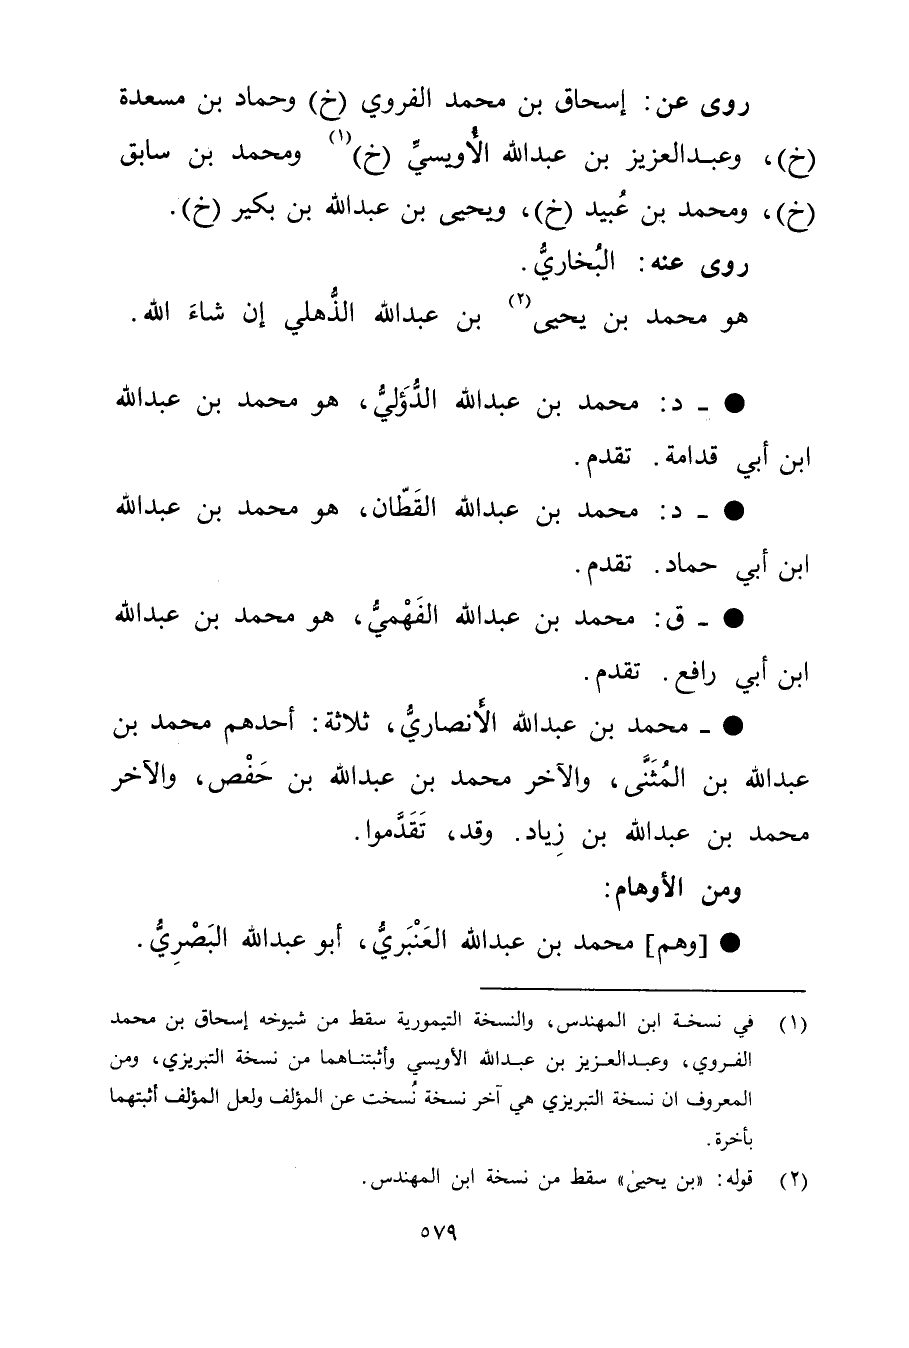 روى عن: إسحاق بن محمد الفروي (خ) وحماد بن مسعدة
(خ)، وعبدالعزيز بن عبدالله الأُويسيِّ (خ)(١) ومحمد بن سابق
(خ)، ومحمد بن عُبيد (خ)، ويحيى بن عبدالله بن بكير (خ).
روى عنه: البُخاريُّ.
هو محمد بن يحيى(٢) بن عبدالله الذُّهلي إن شاءَ الله.
● ـ د: محمد بن عبدالله الدُّؤَليُّ، هو محمد بن عبدالله
ابن أبي قدامة. تقدم.
● ـ د: محمد بن عبدالله القَطّان، هو محمد بن عبدالله
ابن أبي حماد. تقدم.
● ـ ق: محمد بن عبدالله الفَهْميُّ، هو محمد بن عبدالله
ابن أبي رافع. تقدم.
● ـ محمد بن عبدالله الأَنصاريُّ، ثلاثة: أحدهم محمد بن
عبدالله بن المُثَنَّى، والآخر محمد بن عبدالله بن حَفْص، والآخر
محمد بن عبدالله بن زِياد. وقد، تَقَدَّموا.
ومن الأوهام:
● [وهم] محمد بن عبدالله العَنْبَريُّ، أبو عبدالله البَصْرِيُّ.
(١) في نسخة ابن المهندس، والنسخة التيمورية سقط من شيوخه إسحاق بن محمد
الفروي، وعبدالعزيز بن عبدالله الأويسي وأثبتناهما من نسخة التبريزي، ومن
المعروف ان نسخة التبريزي هي آخر نسخة نُسخت عن المؤلف ولعل المؤلف أثبتهما
بأخرة.
(٢) قوله: «بن يحيىٰ» سقط من نسخة ابن المهندس.
٥٧٩